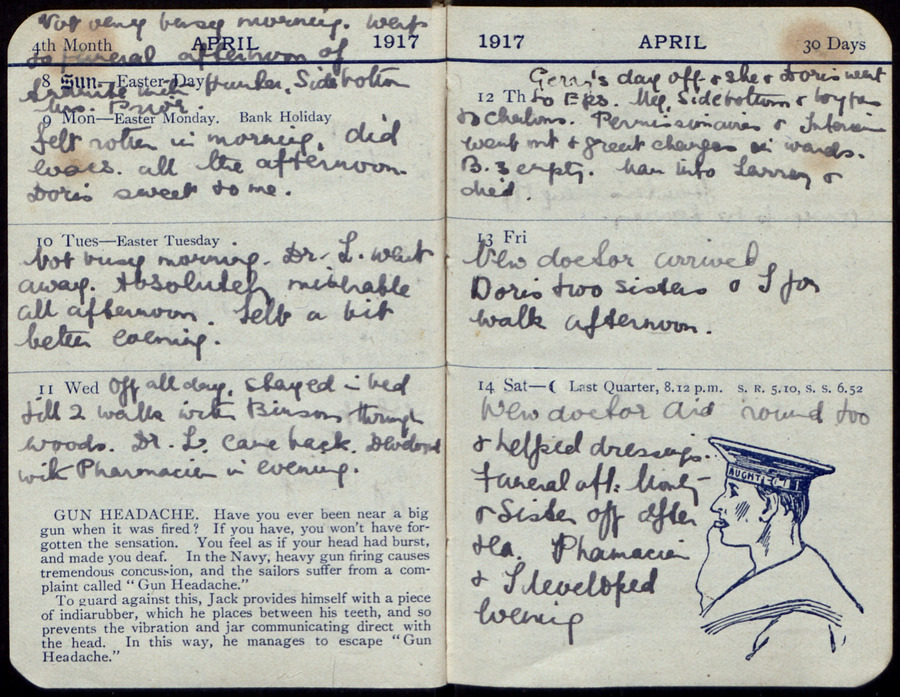 Not very busy morning. Went
4th Month APRIL 1917
to funeral afternoon of
8 Sun—Easter Day
with Hunter, Sidebottom
Mrs.
9 Mon—Easter Monday. Bank Holiday
Felt rotten in morning, did
all the afternoon.
Doris sweet to me.
10 Tues—Easter Tuesday
Not busy morning. Dr. L. went
away. Absolutely miserable
all afternoon. Felt a bit
better evening.
11 Wed Off all day, stayed in bed
till 2 walk with through
woods. Dr. L. came back. Developed
with Pharmacien in evening.
GUN HEADACHE. Have you ever been near a big
gun when it was fired? If you have, you won't have for-
gotten the sensation. You feel as if your head had burst,
and made you deaf. In the Navy, heavy gun firing causes
tremendous concussion, and the sailors suffer from a com-
plaint called "Gun Headache."
To guard against this, Jack provides himself with a piece
of indiarubber, which he places between his teeth, and so
prevents the vibration and jar communicating direct with
the head. In this way, he manages to escape "Gun
Headache."
1917 APRIL 30 Days
day off & she & Doris went
12 Th to Eps. Meg, Sidebottom &
to Chalons. Permissionaires &
went out & great changes in wards.
B. 3 empty. Ran into &
died.
13 Fri
New doctor arrived
Doris two sisters & I for
walk afternoon.
14 Sat—☾ Last Quarter, 8.12 p.m. S. R. 5.10, S. S. 6.52
New doctor did round too
& helped dressings.
Funeral aft:
& Sister off after
tea. Pharmacien
& I developed
evening